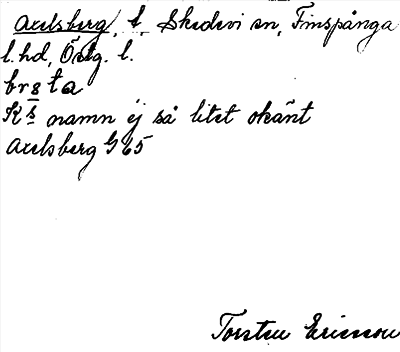 Axelsberg, t, Skedevi sn, Finspånga
l. hd, Östg. l.
brsta
K:s namn ej så litet okänt
Axelsberg G 65
Torsten Ericsson